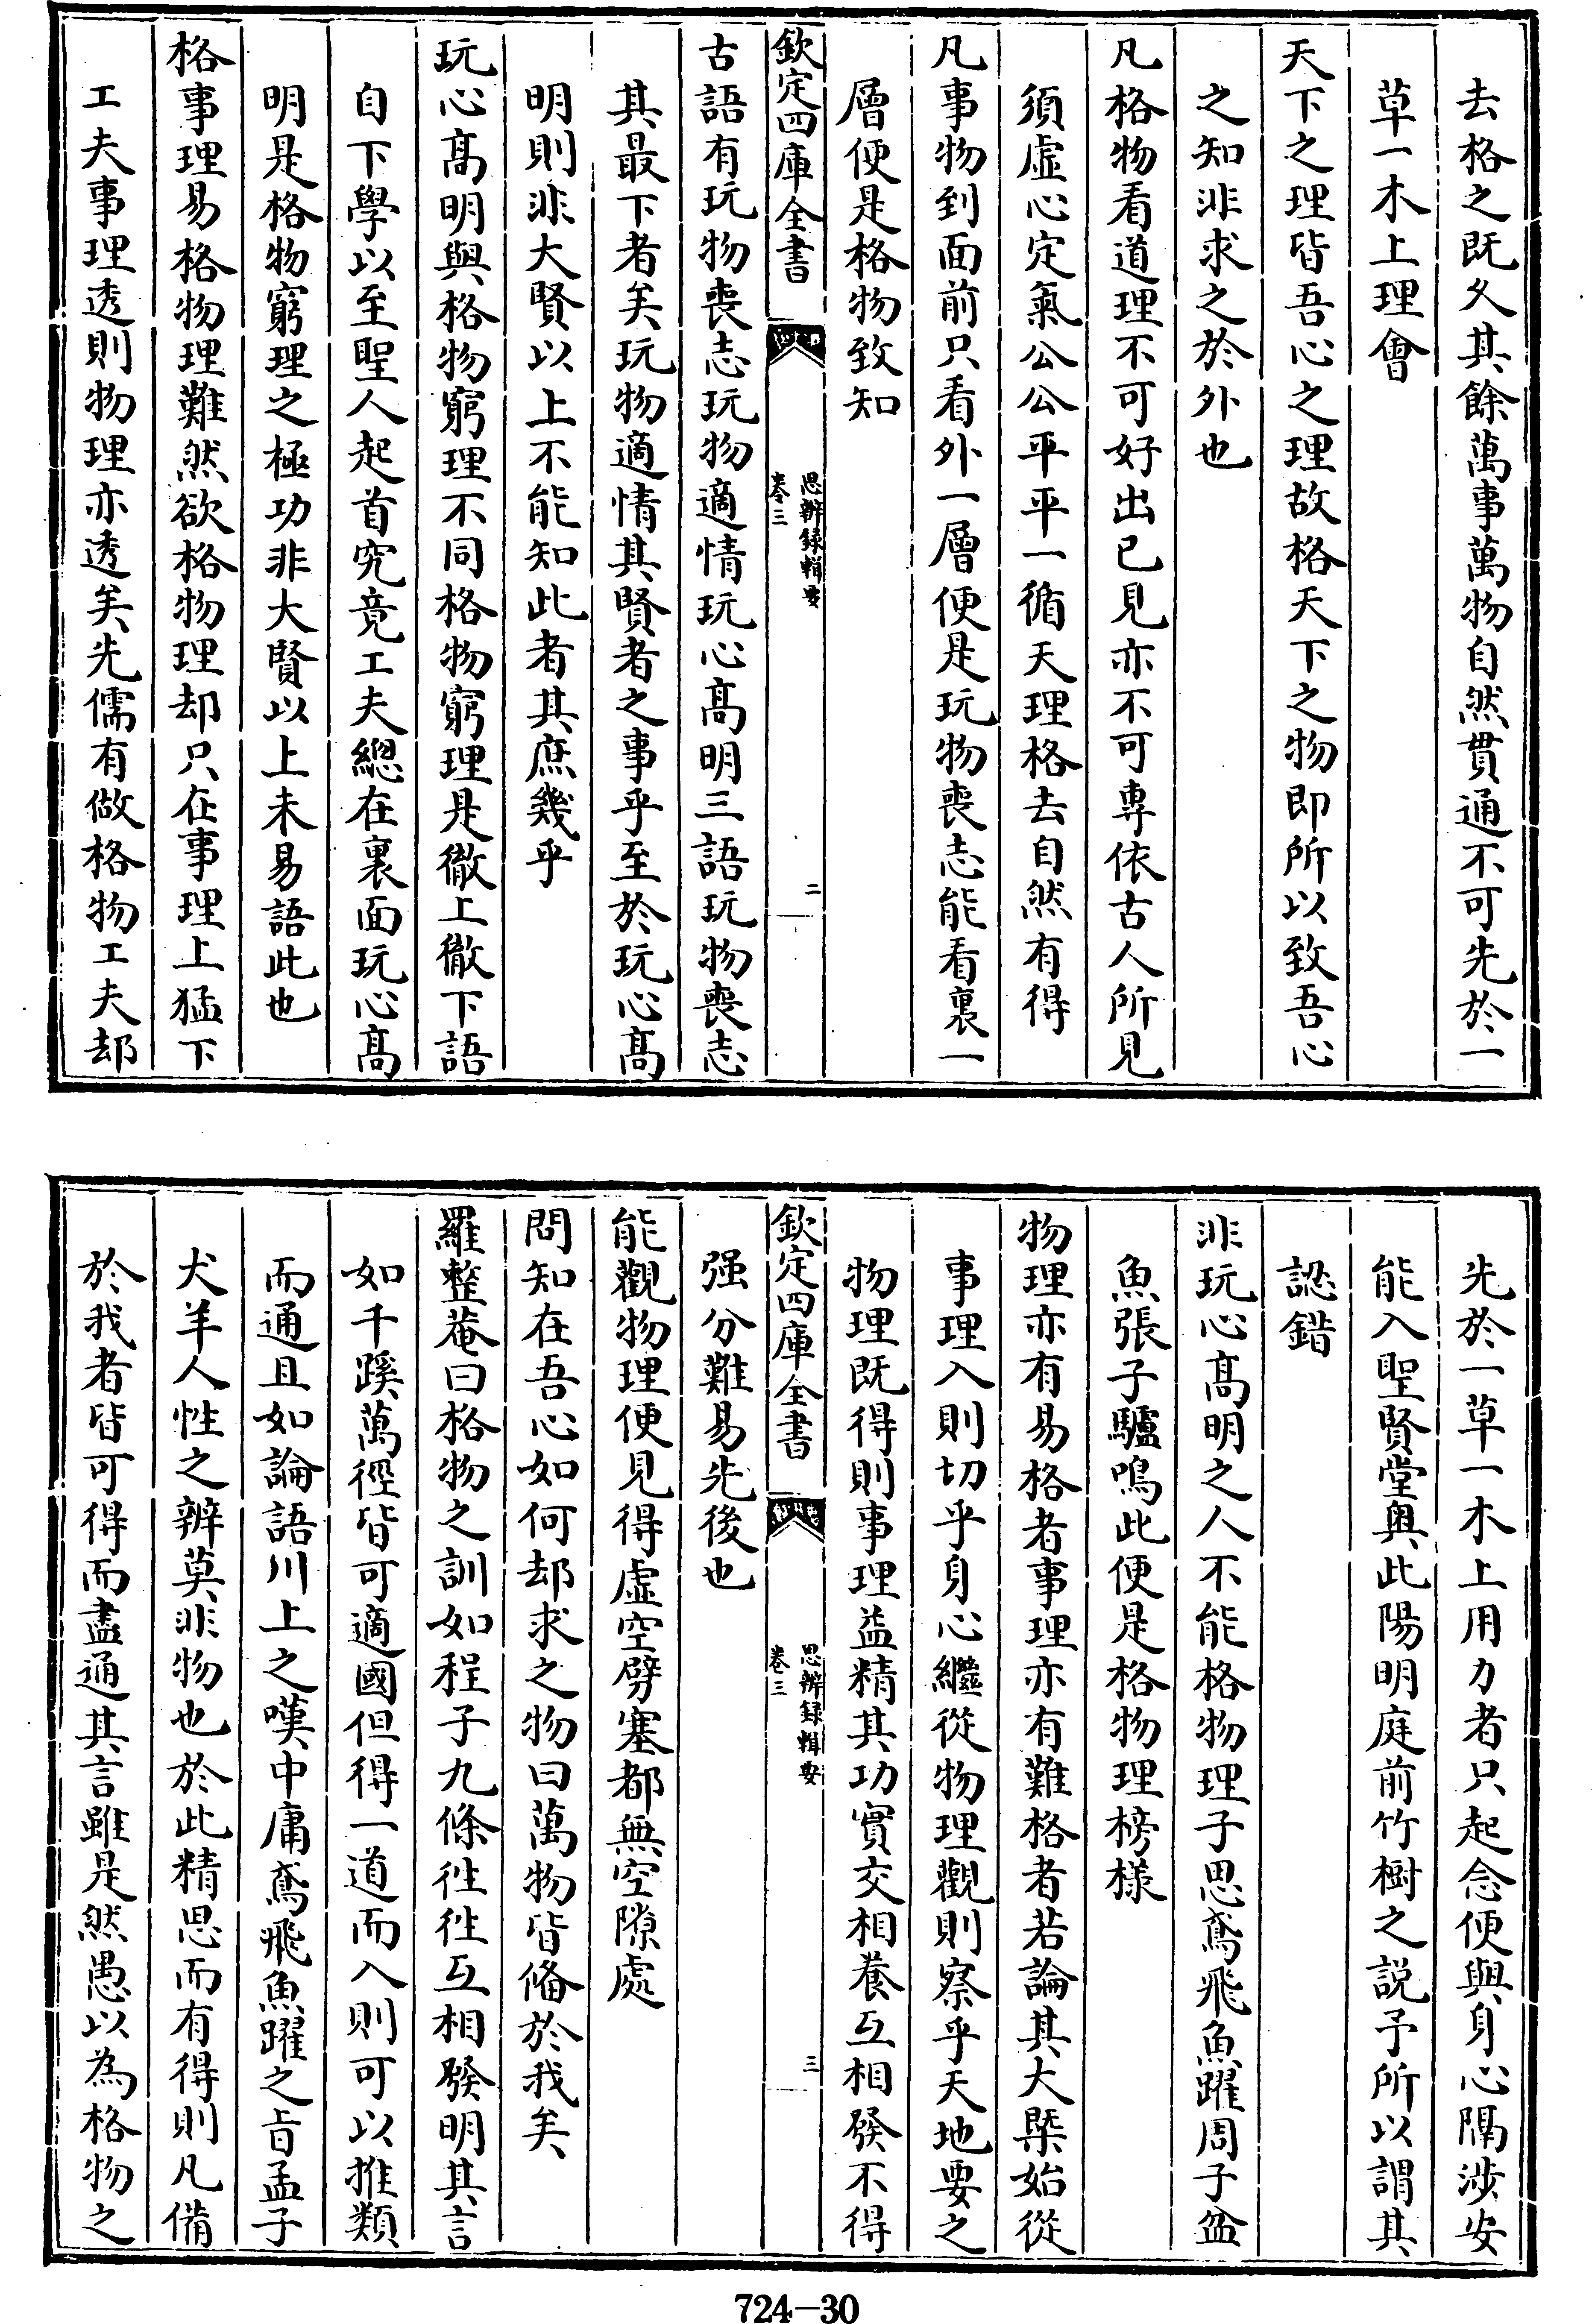 去格之既久其餘萬事萬物自然貫通不可先於一
草一木上理會
天下之理皆吾心之理故格天下之物即所以致吾心
之知非求之於外也
凡格物看道理不可好出己見亦不可專依古人所見
須虛心定氣公公平平一循天理格去自然有得
凡事物到面前只看外一層便是玩物喪志能看裏一
層便是格物致知
欽定四庫全書
思辨録輯要
卷三
二
古語有玩物喪志玩物適情玩心髙明三語玩物喪志
其最下者矣玩物適情其賢者之事乎至於玩心髙
明則非大賢以上不能知此者其庶幾乎
玩心髙明與格物窮理不同格物窮理是徹上徹下語
自下學以至聖人起首究竟工夫總在裏面玩心髙
明是格物窮理之極功非大賢以上未易語此也
格事理易格物理難然欲格物理却只在事理上猛下
工夫事理透則物理亦透矣先儒有做格物工夫却
先於一草一木上用力者只起念便與身心隔涉安
能入聖賢堂奥此陽明庭前竹樹之説予所以謂其
認錯
非玩心髙明之人不能格物理子思鳶飛魚躍周子盆
魚張子驢鳴此便是格物理榜樣
物理亦有易格者事理亦有難格者若論其大槩始從
事理入則切乎身心繼從物理觀則察乎天地要之
物理既得則事理益精其功實交相養互相發不得
欽定四庫全書
思辨録輯要
卷三
三
强分難易先後也
能觀物理便見得虛空劈塞都無空隙處
問知在吾心如何却求之物曰萬物皆備於我矣
羅整菴曰格物之訓如程子九條徃徃互相發明其言
如千蹊萬徑皆可適國但得一道而入則可以推類
而通且如論語川上之嘆中庸鳶飛魚躍之旨孟子
犬羊人性之辨莫非物也於此精思而有得則凡備
於我者皆可得而盡通其言雖是然愚以為格物之
724-30